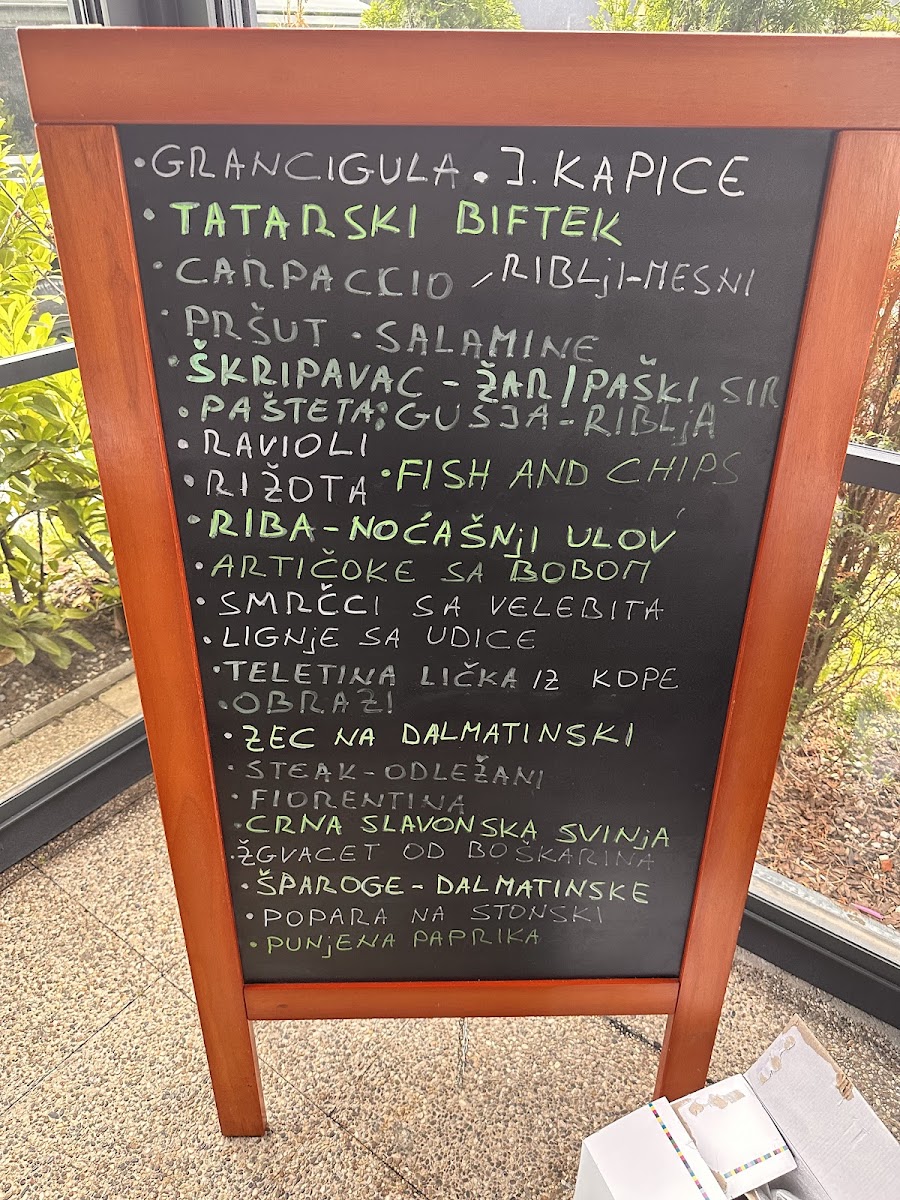 • GRANCIGULA • J. KAPICE
• TATARSKI BIFTEK
• CARPACCIO / RIBLjI-MESNI
• PRŠUT • SALAMINE
• ŠKRIPAVAC - ŽAR / PAŠKI SIR
• PAŠTETA: GUSJA - RIBLjA
• RAVIOLI
• RIŽOTA • FISH AND CHIPS
• RIBA - NOĆAŠNjI ULOV
• ARTIČOKE SA BOBOM
• SMRČCI SA VELEBITA
• LIGNjE SA UDICE
• TELETINA LIČKA IZ KOPE
• OBRAZI
• ZEC NA DALMATINSKI
• STEAK - ODLEŽANI
• FIORENTINA
• CRNA SLAVONSKA SVINjA
• ŽGVACET OD BOŠKARINA
• ŠPAROGE - DALMATINSKE
• POPARA NA STONSKI
• PUNjENA PAPRIKA